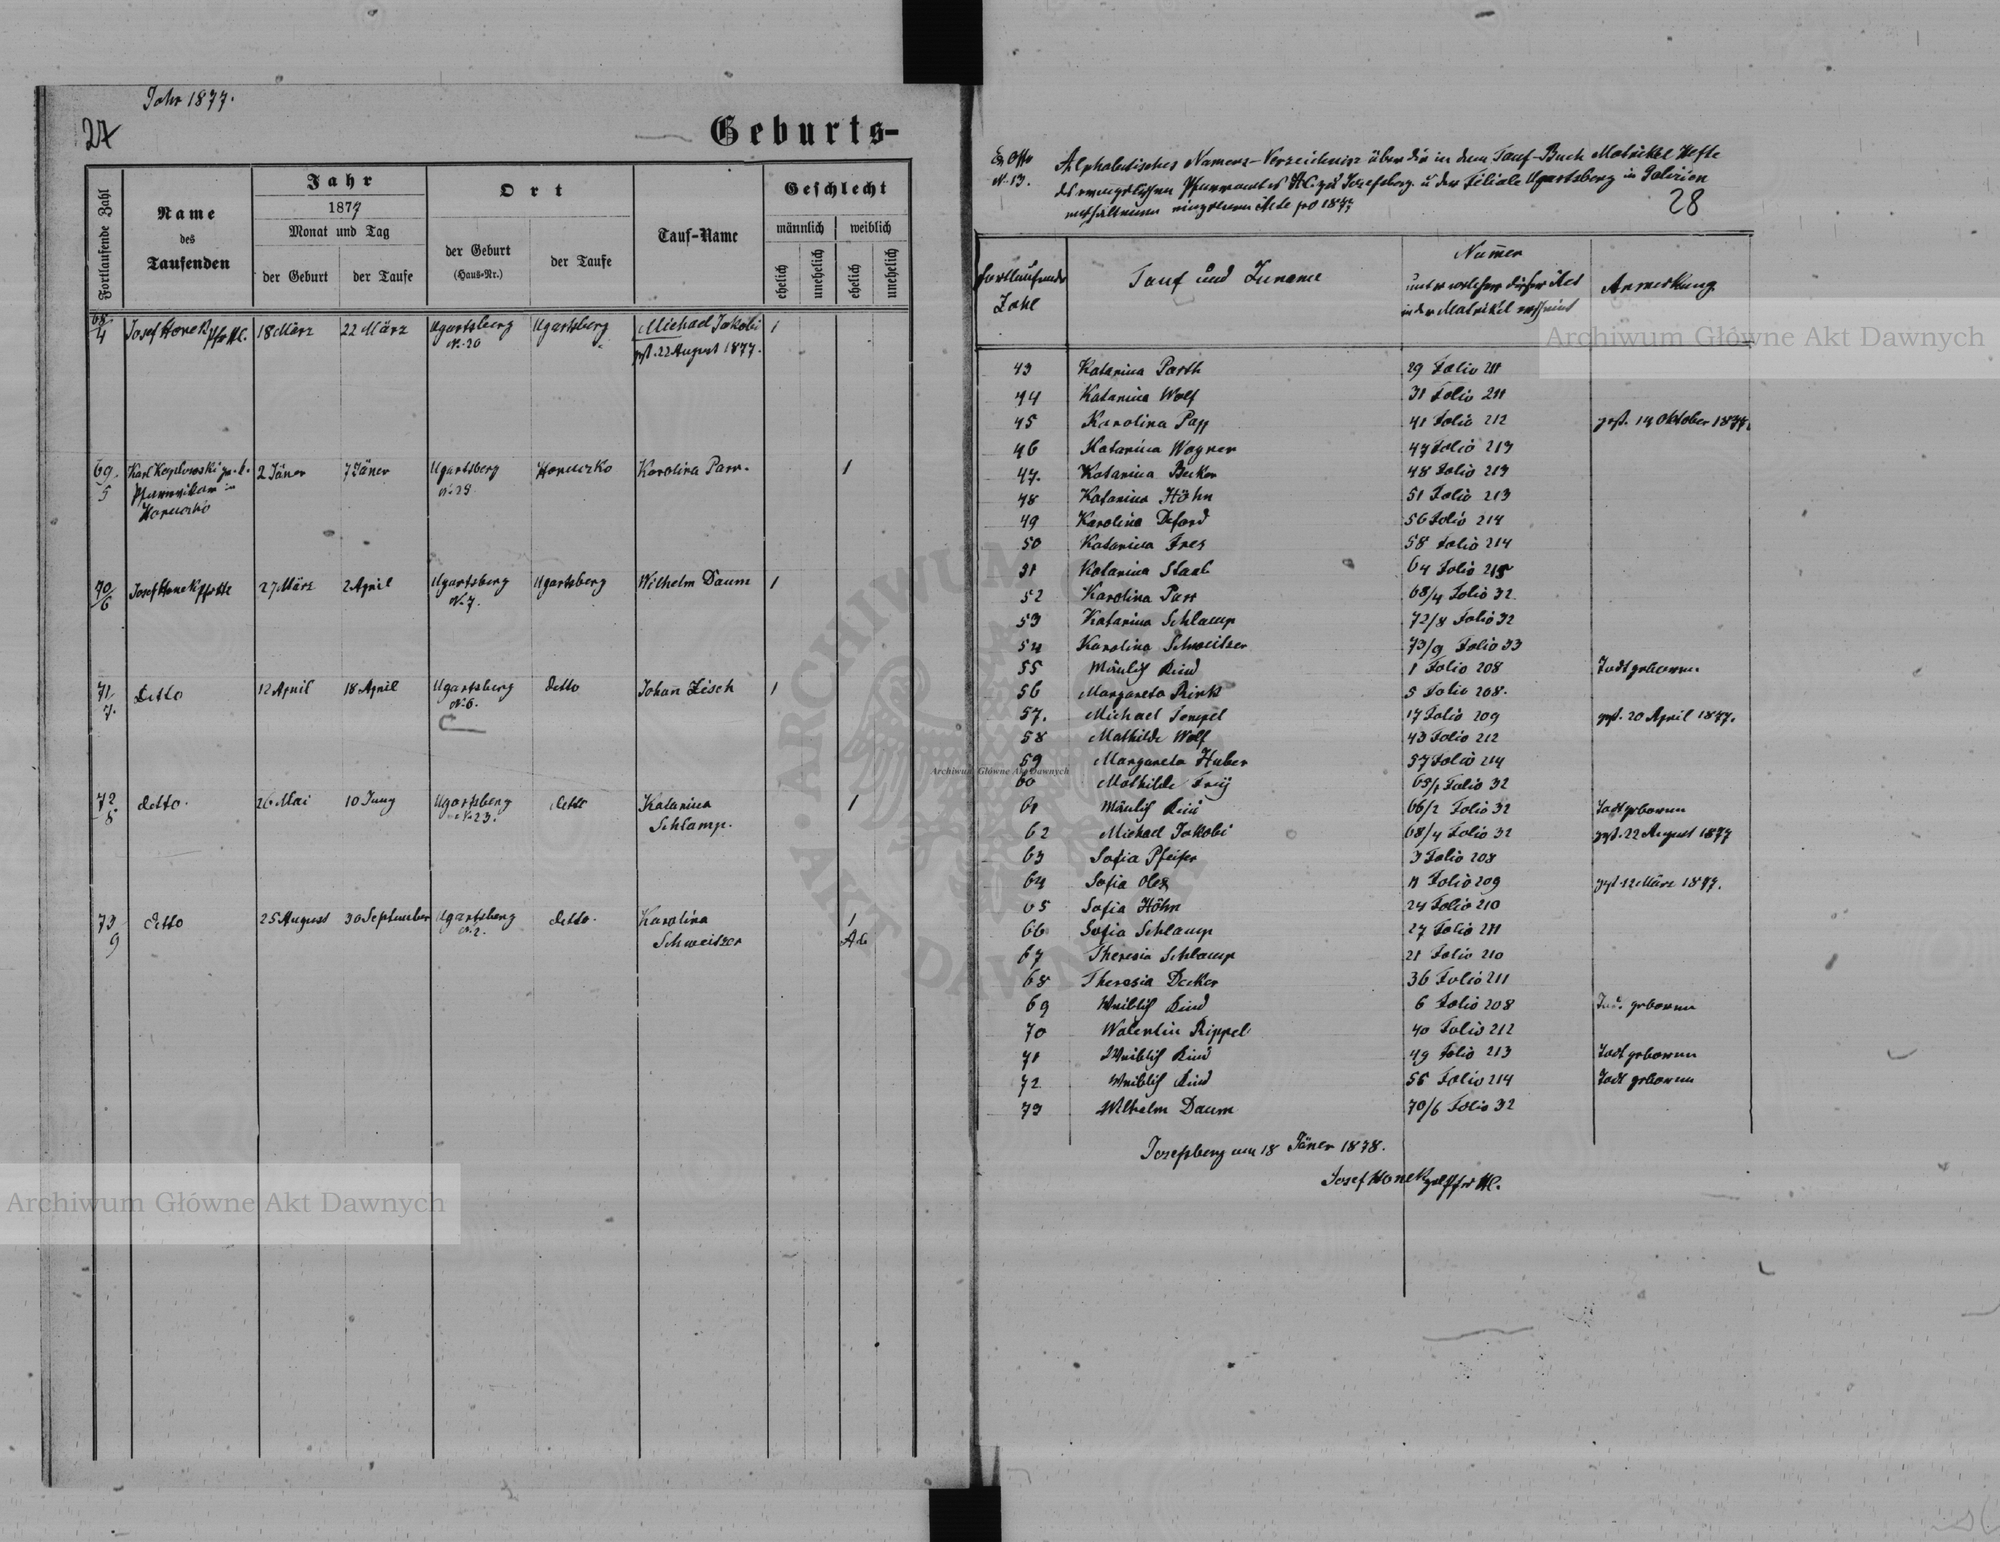 Jahr 1877.
27
Geburts-
Fortlaufende Zahl
Name
des
Taufenden
Jahr
1877
Monat und Tag
der Geburt
der Taufe
Ort
der Geburt
(Haus-Nr.)
der Taufe
Tauf-Name
Geschlecht
männlich
weiblich
ehelich
unehelich
ehelich
unehelich
68/4 Josef Honek 18 März 22 März Ugartsberg Ugartsberg Michael Jakobi 1
N. 20 gest. 22 August 1877.
69/5 Karl Koslowski 2 Jäner 7 Jäner Ugartsberg Horucko Karolina Parr. 1
Pfarrvikar in N. 29
Horucko
70/6 Josef Honek 27 März 2 April Ugartsberg Ugartsberg Wilhelm Daum 1
N. 7.
71/7. Detto 12 April 18 April Ugartsberg detto Johan Zisch 1
N. 6.
72/8 detto. 26 Mai 10 Juny Ugartsberg detto Katarina 1
N. 23. Schlamp.
73/9 detto 25 August 30 September Ugartsberg detto. Karolina 1
N. 2. Schweitzer
Ex Offo
N. 13.
Alphabetisches Namens-Verzeichniss über die in dem Tauf-Buch Matrikel Hefte
des evangelischen Pfarramtes zu Josefsberg u der Filiale Ugartsberg in Galizien
enthaltenen eingetragenen Acte pro 1877
28
Fortlaufende
Zahl
Tauf und Zuname
Numer
unter welcher dieser Act
in der Matrikel erscheint
Anmerkung
43 Katarina Parth 29 Folio 211
44 Katarina Wolf 31 Folio 211
45 Karolina Papp 41 Folio 212 gest. 14 Oktober 1877.
46 Katarina Wagner 47 Folio 213
47. Katarina Becker 48 Folio 213
48 Katarina Höhn 51 Folio 213
49 Karolina Deford 56 Folio 214
50 Katarina Fres 58 Folio 214
51 Katarina Staab 64 Folio 215
52 Karolina Parr 68/4 Folio 32
53 Katarina Schlamp 72/8 Folio 32
54 Karolina Schweitzer 73/9 Folio 33
55 Mänlich Kind 1 Folio 208 Todtgeboren
56 Margareta Rink 5 Folio 208.
57. Michael Tempel 17 Folio 209 gest. 20 April 1877.
58 Mathilde Wolf 43 Folio 212
59 Margareta Huber 57 Folio 214
60 Mathilde Frey 65/1 Folio 32
61 Mänlich Kind 66/2 Folio 32 Todtgeboren
62 Michael Jakobi 68/4 Folio 32 gest. 22 August 1877
63 Sofia Pfeifer 3 Folio 208
64 Sofia Olex 11 Folio 209 gest. 12 März 1877.
65 Sofia Höhn 24 Folio 210
66 Sofia Schlamp 27 Folio 211
67 Theresia Schlamp 21 Folio 210
68 Theresia Decker 36 Folio 211
69 Weiblich Kind 6 Folio 208 Todt geboren
70 Walentin Rippel 40 Folio 212
71 Weiblich Kind 49 Folio 213 Todt geboren
72 Weiblich Kind 55 Folio 214 Todt geboren
73 Wilhelm Daum 70/6 Folio 32
Josefsberg am 18 Jäner 1878.
Josef Honek
Archiwum Główne Akt Dawnych
Archiwum Główne Akt Dawnych
Archiwum Główne Akt Dawnych
ARCHIWUM
AKT DAWNYCH